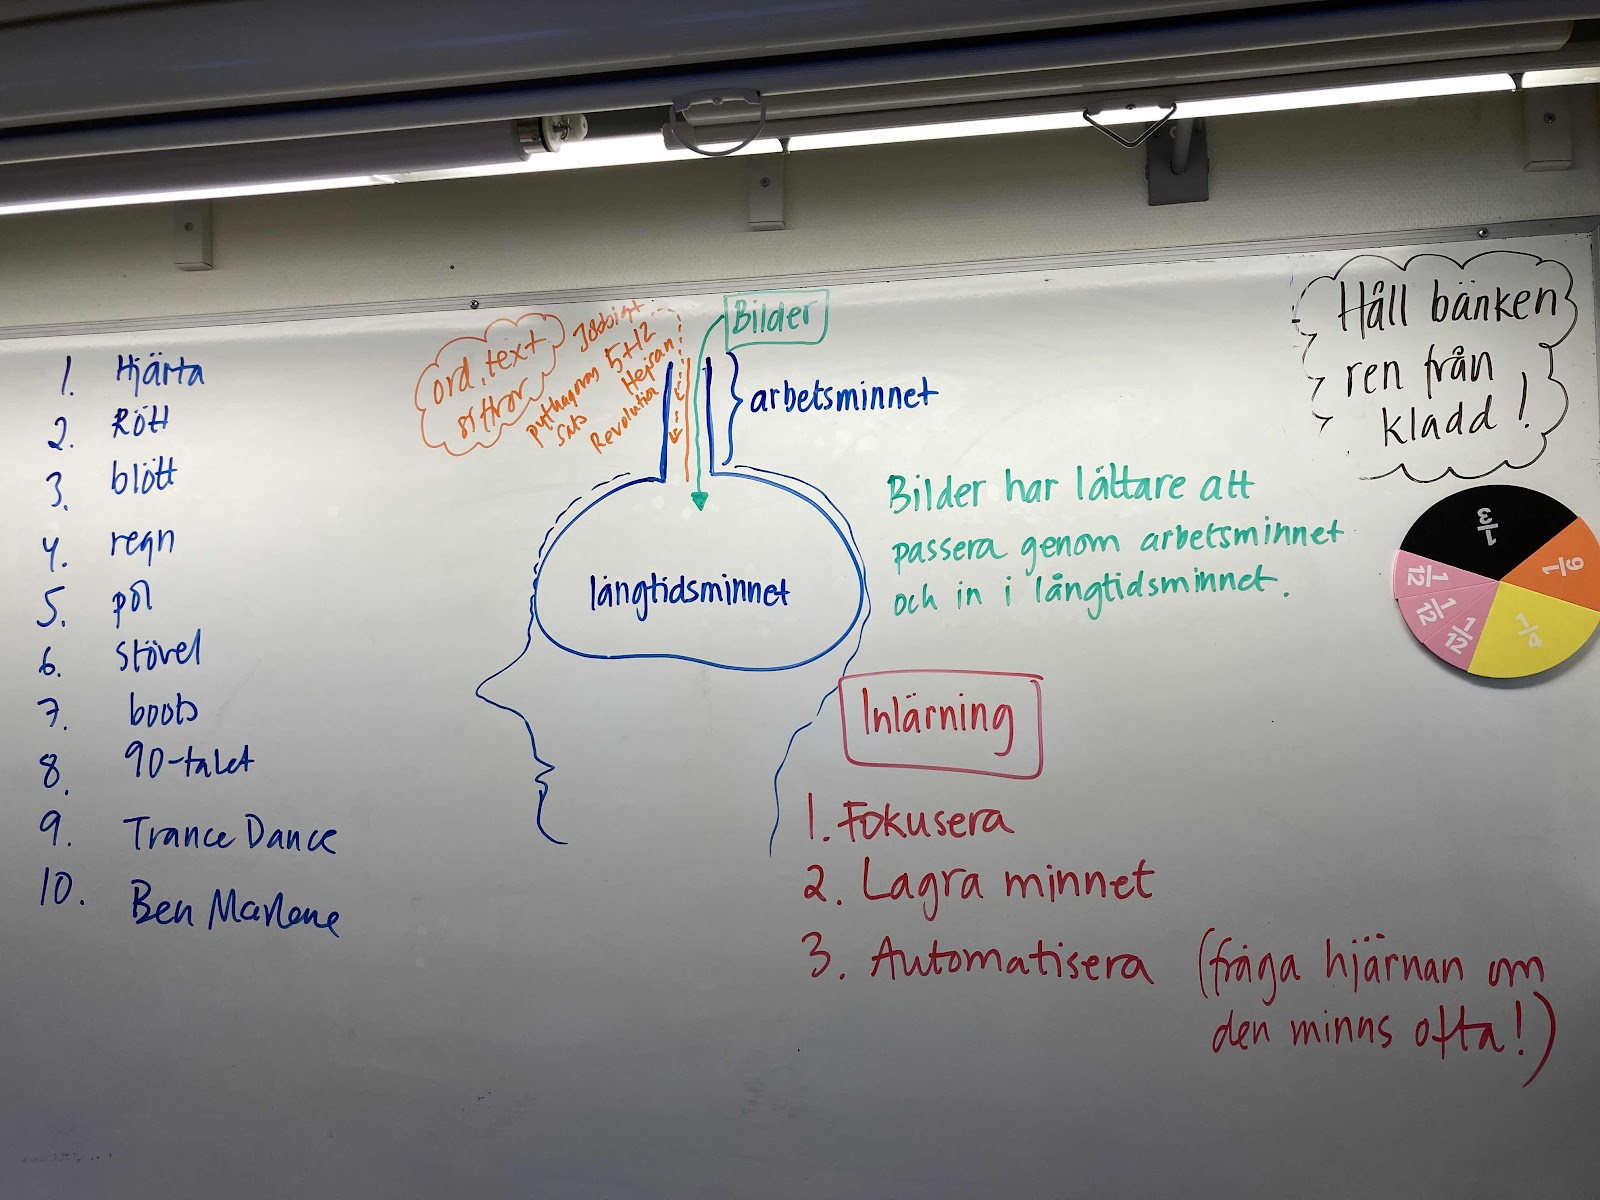 1. Hjärta
2. Rött
3. blött
4. regn
5. pöl
6. stövel
7. boots
8. 90-talet
9. Trance Dance
10. Ben Marlene
ord, text
siffror
Jobbigt
5+12
Hejsan
pythagoras
sats
Revolution
Bilder
arbetsminnet
långtidsminnet
Bilder har lättare att
passera genom arbetsminnet
och in i långtidsminnet.
Inlärning
1. Fokusera
2. Lagra minnet
3. Automatisera (fråga hjärnan om
den minns ofta!)
Håll bänken
ren från
kladd!
1/3
1/6
1/4
1/12
1/12
1/12